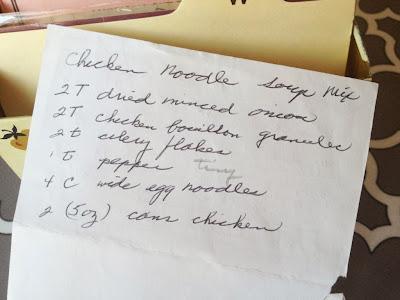 Chicken Noodle Soup Mix
2 T dried minced onion
2 T chicken bouillon granules
2 t celery flakes
1 t pepper tiny
4 C wide egg noodles
2 (5oz) cans chicken